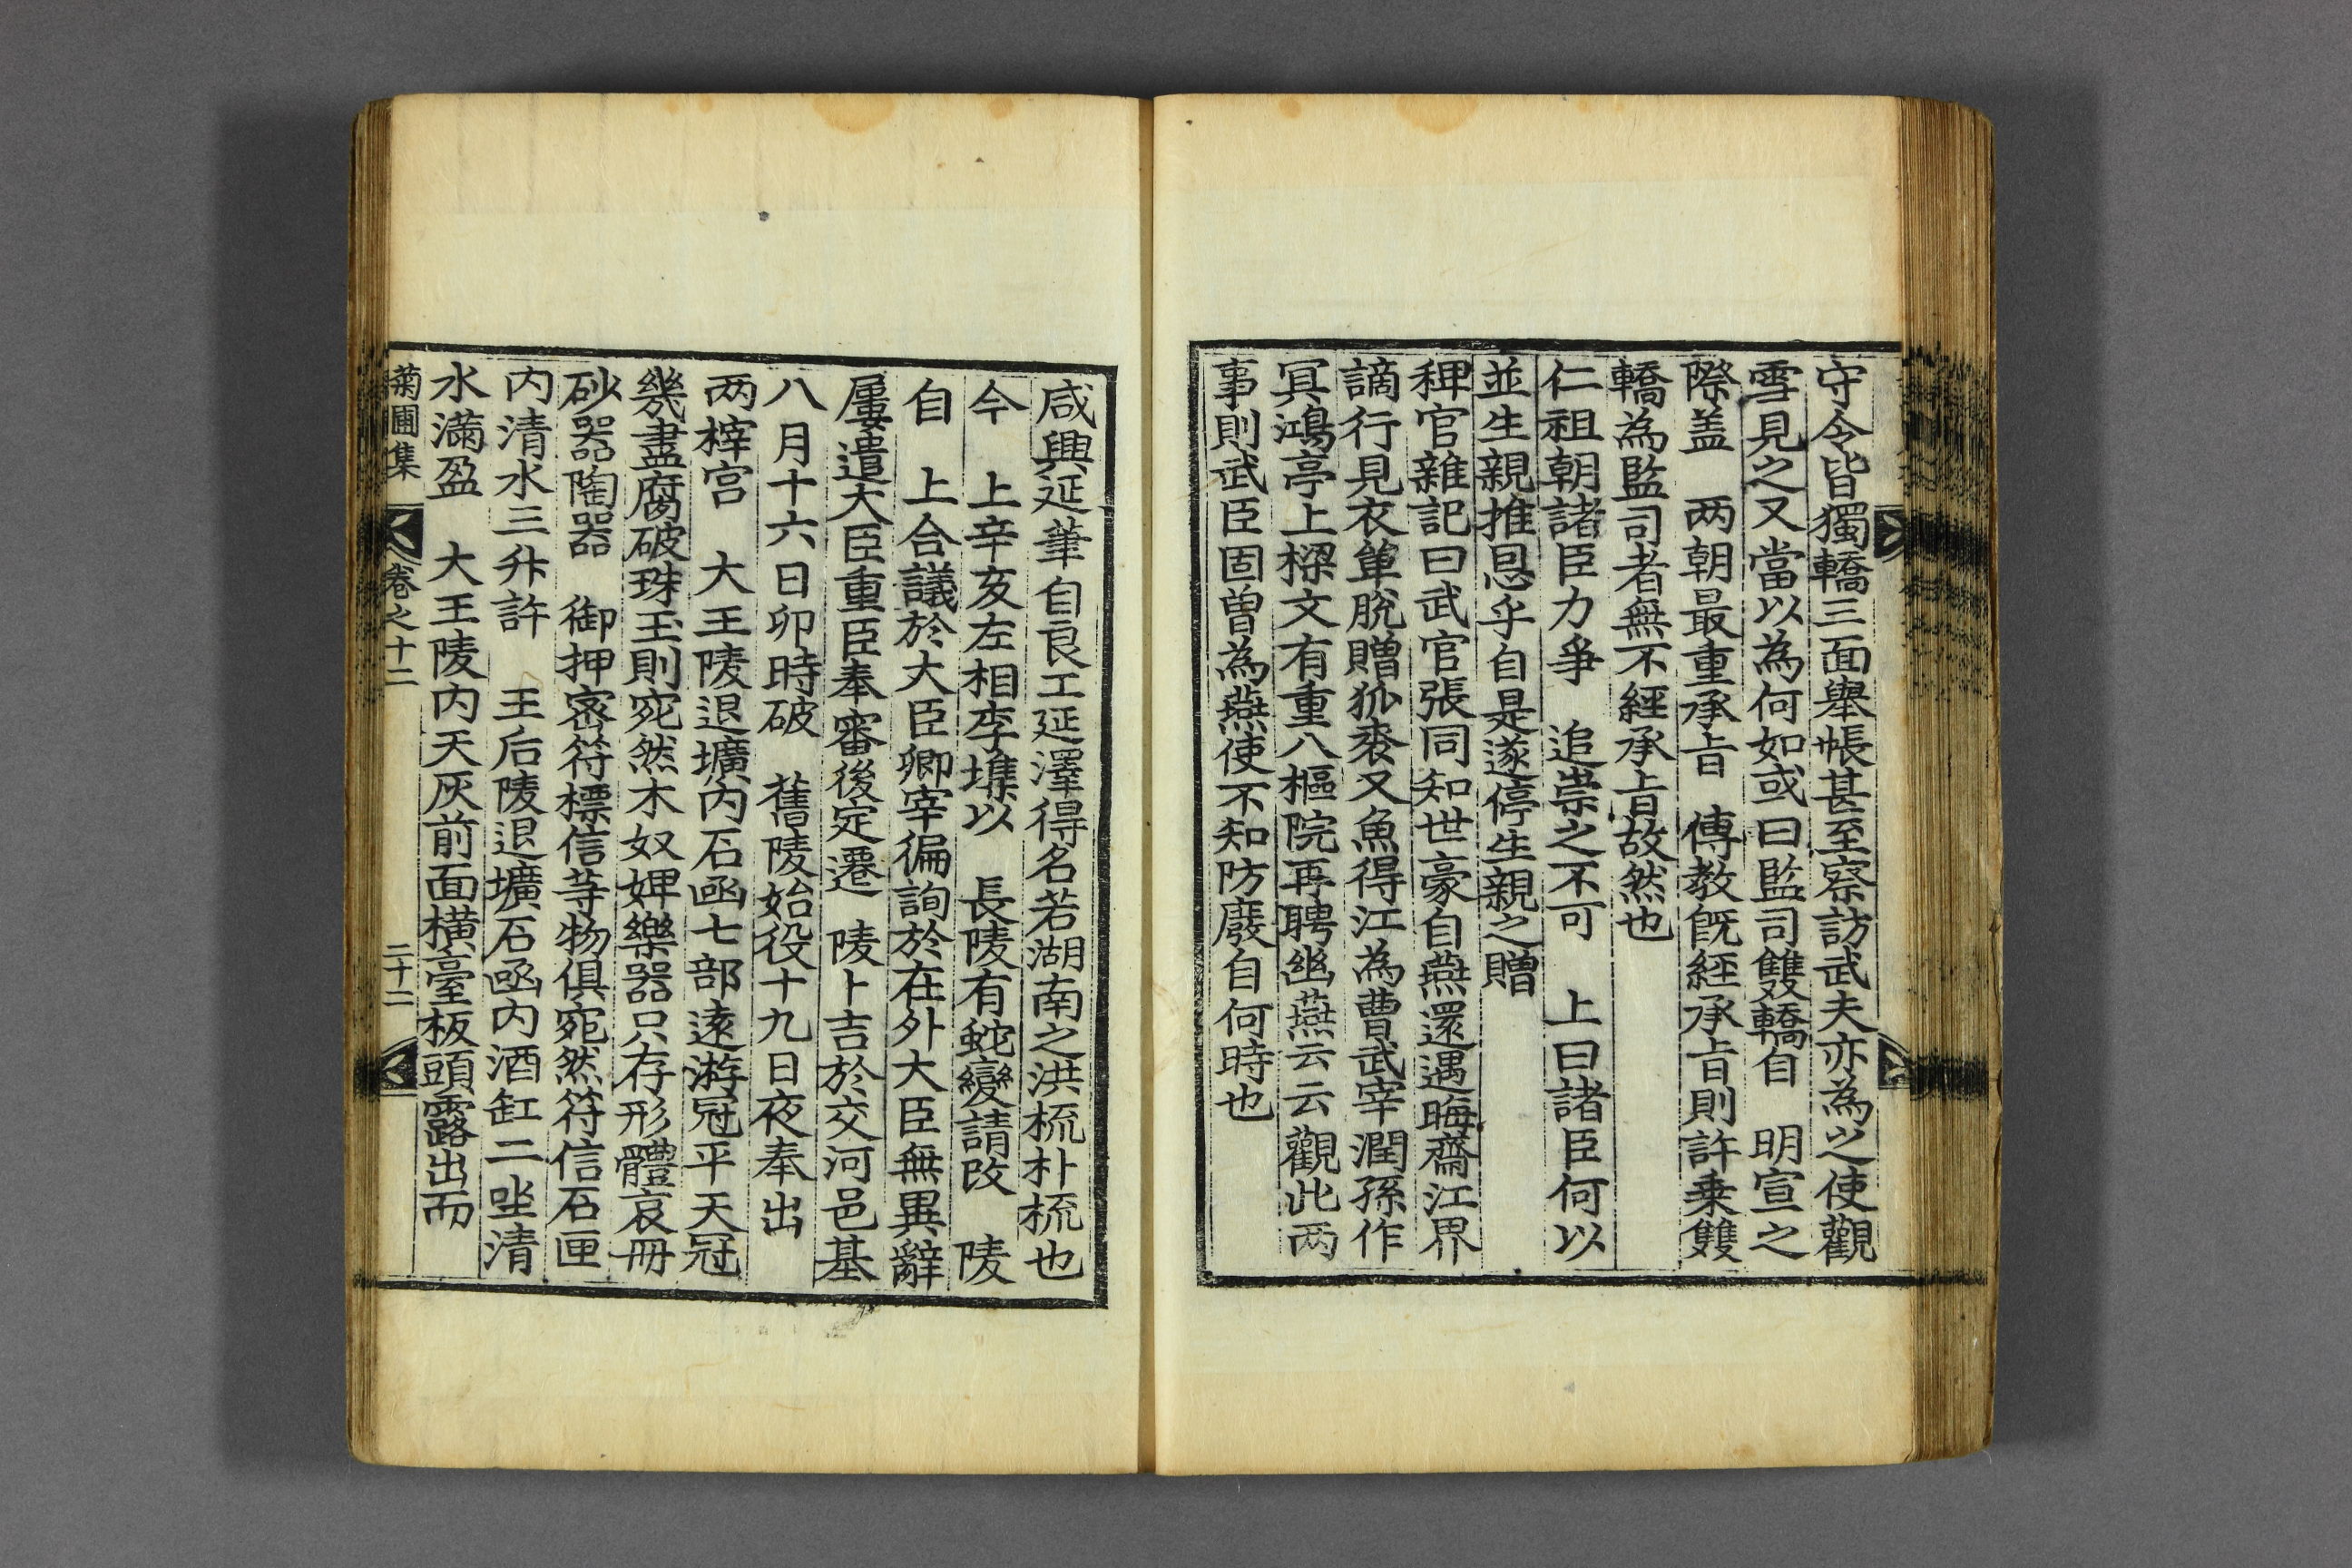 守令皆獨轎三面擧帳甚至察訪武夫亦為之使觀
雪見之又當以為何如或曰監司雙轎自　明宣之
際盖　两朝最重承旨　傳教旣經承旨則許乗雙
轎為監司者無不經承旨故然也
仁祖朝諸臣力爭　追崇之不可　上曰諸臣何以
並生親推恩乎自是遂停生親之贈
稗官雜記曰武官張同知世豪自燕還遇晦齋江界
謫行見衣單脫贈狐裘又魚得江為曹武宰潤孫作
冥鴻亭上樑文有重八樞院再聘幽燕云云觀此两
事則武臣固曽為燕使不知防廢自何時也
咸興延華自良工延澤得名若湖南之洪梳朴梳也
今　上辛亥左相李㙫以　長陵有蛇變請改　陵
自　上合議於大臣卿宰徧詢於在外大臣無異辭
屢遣大臣重臣奉審後定遷　陵卜吉於交河邑基
八月十六日卯時破　舊陵始役十九日夜奉出
两梓宮　大王陵退壙內石函七部遠游冠平天冠
幾盡腐破珠玉則宛然木奴婢樂器只存形體哀冊
砂器陶器　御押密符標信等物俱宛然符信石匣
內清水三升許　王后陵退壙石函內酒缸二坐清
水滿盈　大王陵內天灰前面橫臺板頭露出而
菊圃集　卷之十二　二十二